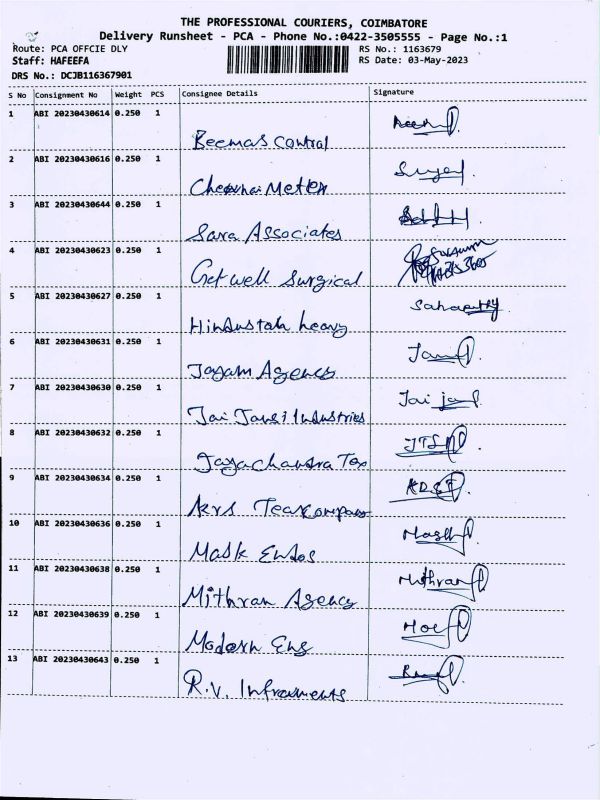 THE PROFESSIONAL COURIERS, COIMBATORE
Delivery Runsheet - PCA - Phone No.:0422-3505555 - Page No.:1
Route: PCA OFFCIE DLY RS No.: 1163679
Staff: HAFEEFA RS Date: 03-May-2023
DRS No.: DCJB116367901
S No Consignment No Weight PCS Consignee Details Signature
1 ABI 20230430614 0.250 1
Beemas Control
2 ABI 20230430616 0.250 1
Chennai Metter
3 ABI 20230430644 0.250 1
Sara Associates
4 ABI 20230430623 0.250 1
Getwell Surgical
5 ABI 20230430627 0.250 1
Hindustan heavy
6 ABI 20230430631 0.250 1
Jayam Agency
7 ABI 20230430630 0.250 1 Jai
Jai Jansi Industries
8 ABI 20230430632 0.250 1
Jayachandra Tex
9 ABI 20230430634 0.250 1
Krs Teas Company
10 ABI 20230430636 0.250 1
Mask
11 ABI 20230430638 0.250 1 Mithran
Mithran Agency
12 ABI 20230430639 0.250 1
Modern Eng
13 ABI 20230430643 0.250 1
R.V.